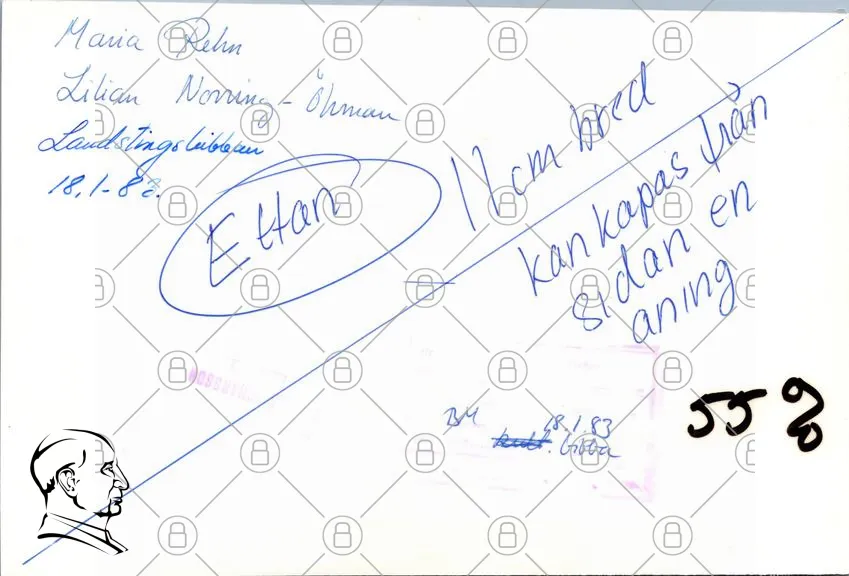 Maria Rehn
Lilian Norring-Öhman
Landstingsbibban
18.1-83.
Ettan
11 cm bred
kan kapas från
sidan en
aning
BM 18.1.83
bibba
55 %